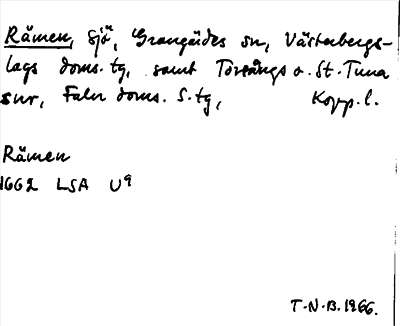 Rämen, sjö, Grangärdes sn, Västerbergs-
lags doms. tg, samt Torsångs o. St. Tuna
snr, Falu doms. S. tg, Kopp. l.
Rämen
1662 LSA U9
T.N.B. 1966.